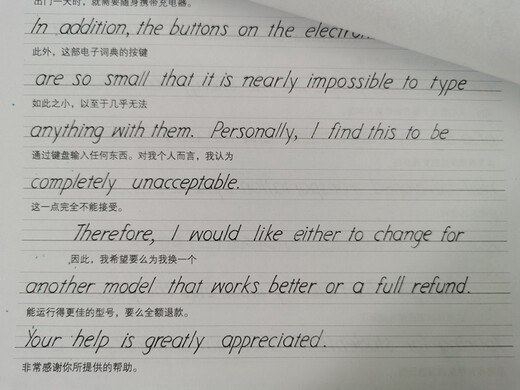 出门一天时，就需要随身携带充电器。
In addition, the buttons on the
此外，这部电子词典的按键
are so small that it is nearly impossible to type
如此之小，以至于几乎无法
anything with them. Personally, I find this to be
通过键盘输入任何东西。对我个人而言，我认为
completely unacceptable.
这一点完全不能接受。
Therefore, I would like either to change for
因此，我希望要么为我换一个
another model that works better or a full refund.
能运行得更佳的型号，要么全额退款。
Your help is greatly appreciated.
非常感谢你所提供的帮助。